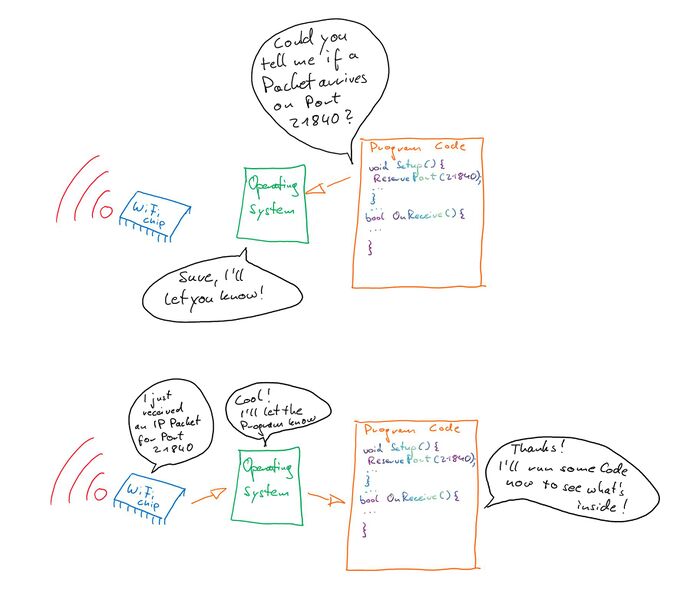 Could you
tell me if a
Packet arrives
on Port
21840?
Program Code
void Setup() {
ReservePort(21840);
...
}
...
bool OnReceive() {
...
}
Operating
System
WiFi
chip
Sure, I'll
let you know!
I just
received
an IP Packet
for Port
21840
Cool!
I'll let the
Program know
Program Code
void Setup() {
ReservePort(21840);
...
}
...
bool OnReceive() {
...
}
Operating
System
WiFi
chip
Thanks!
I'll run some Code
now to see what's
inside!